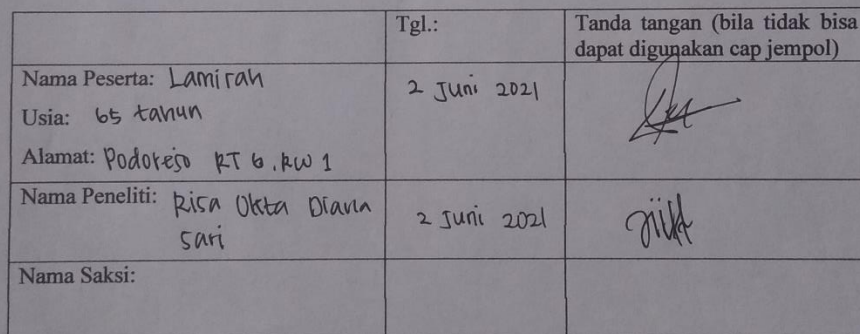 Tgl.:
Tanda tangan (bila tidak bisa
dapat digunakan cap jempol)
Nama Peserta: Lamirah
Usia: 65 tahun
Alamat: Podorejo RT 6, RW 1
2 Juni 2021
Nama Peneliti: Risa Okta Diana
Sari
2 Juni 2021
Nama Saksi: